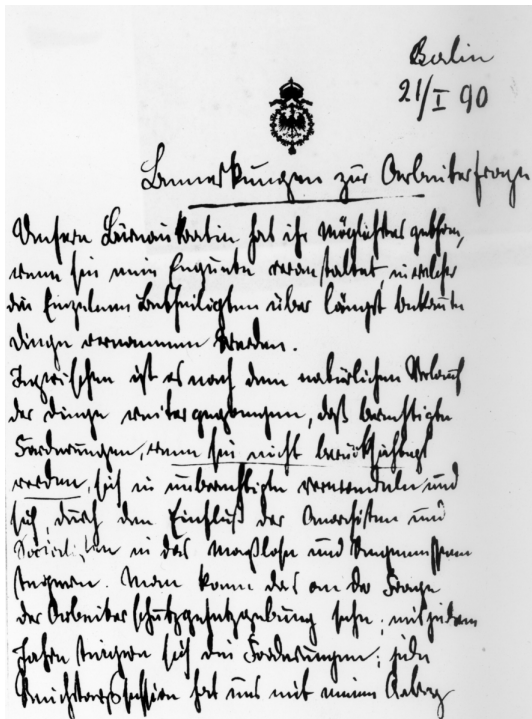 Berlin
21/I 90
Bemerkungen zur Arbeiterfrage
Unsere Büraukratie hat ihr Möglichstes gethan,
wenn sie eine Enquete veranstaltet, in welcher
die Einzelnen Betheiligten über längst bekannte
Dinge vernommen werden.
Inzwischen ist es nach dem natürlichen Verlauf
der Dinge weitergegangen, daß berechtigte
Forderungen, wenn sie nicht berücksichtigt
werden, sich in unberechtigte verwandeln und
sich, durch den Einfluß der Anarchisten und
Socialisten in das Maßlose und
steigern. Man kann das an der Frage
der Arbeiterschutzgesetzgebung sehn; mit jedem
Jahre steigern sich die Forderungen; jede
Reichstagssession hat uns mit einem